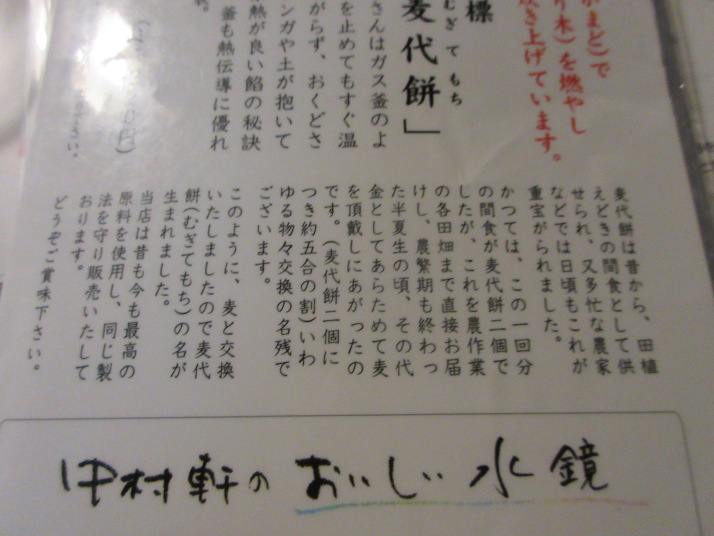 かまど)で
り木)を燃やし
炊き上げています。
標
むぎてもち
麦代餅」
さんはガス釜のよ
を止めてもすぐ温
がらず、おくどさ
ンガや土が抱いて
熱が良い餡の秘訣
釜も熱伝導に優れ
れ。
麦代餅は昔から、田植
えどきの間食として供
せられ、又多忙な農家
などでは日頃もこれが
重宝がられました。
かつては、この一回分
の間食が麦代餅二個で
したが、これを農作業
の各田畑まで直接お届
けし、農繁期も終わっ
た半夏生の頃、その代
金としてあらためて麦
を頂戴しにあがったの
です。(麦代餅二個に
つき約五合の割)いわ
ゆる物々交換の名残で
ございます。
このように、麦と交換
いたしましたので麦代
餅(むぎてもち)の名が
生まれました。
当店は昔も今も最高の
原料を使用し、同じ製
法を守り販売いたして
おります。
どうぞご賞味下さい。
中村軒のおいしい水鏡